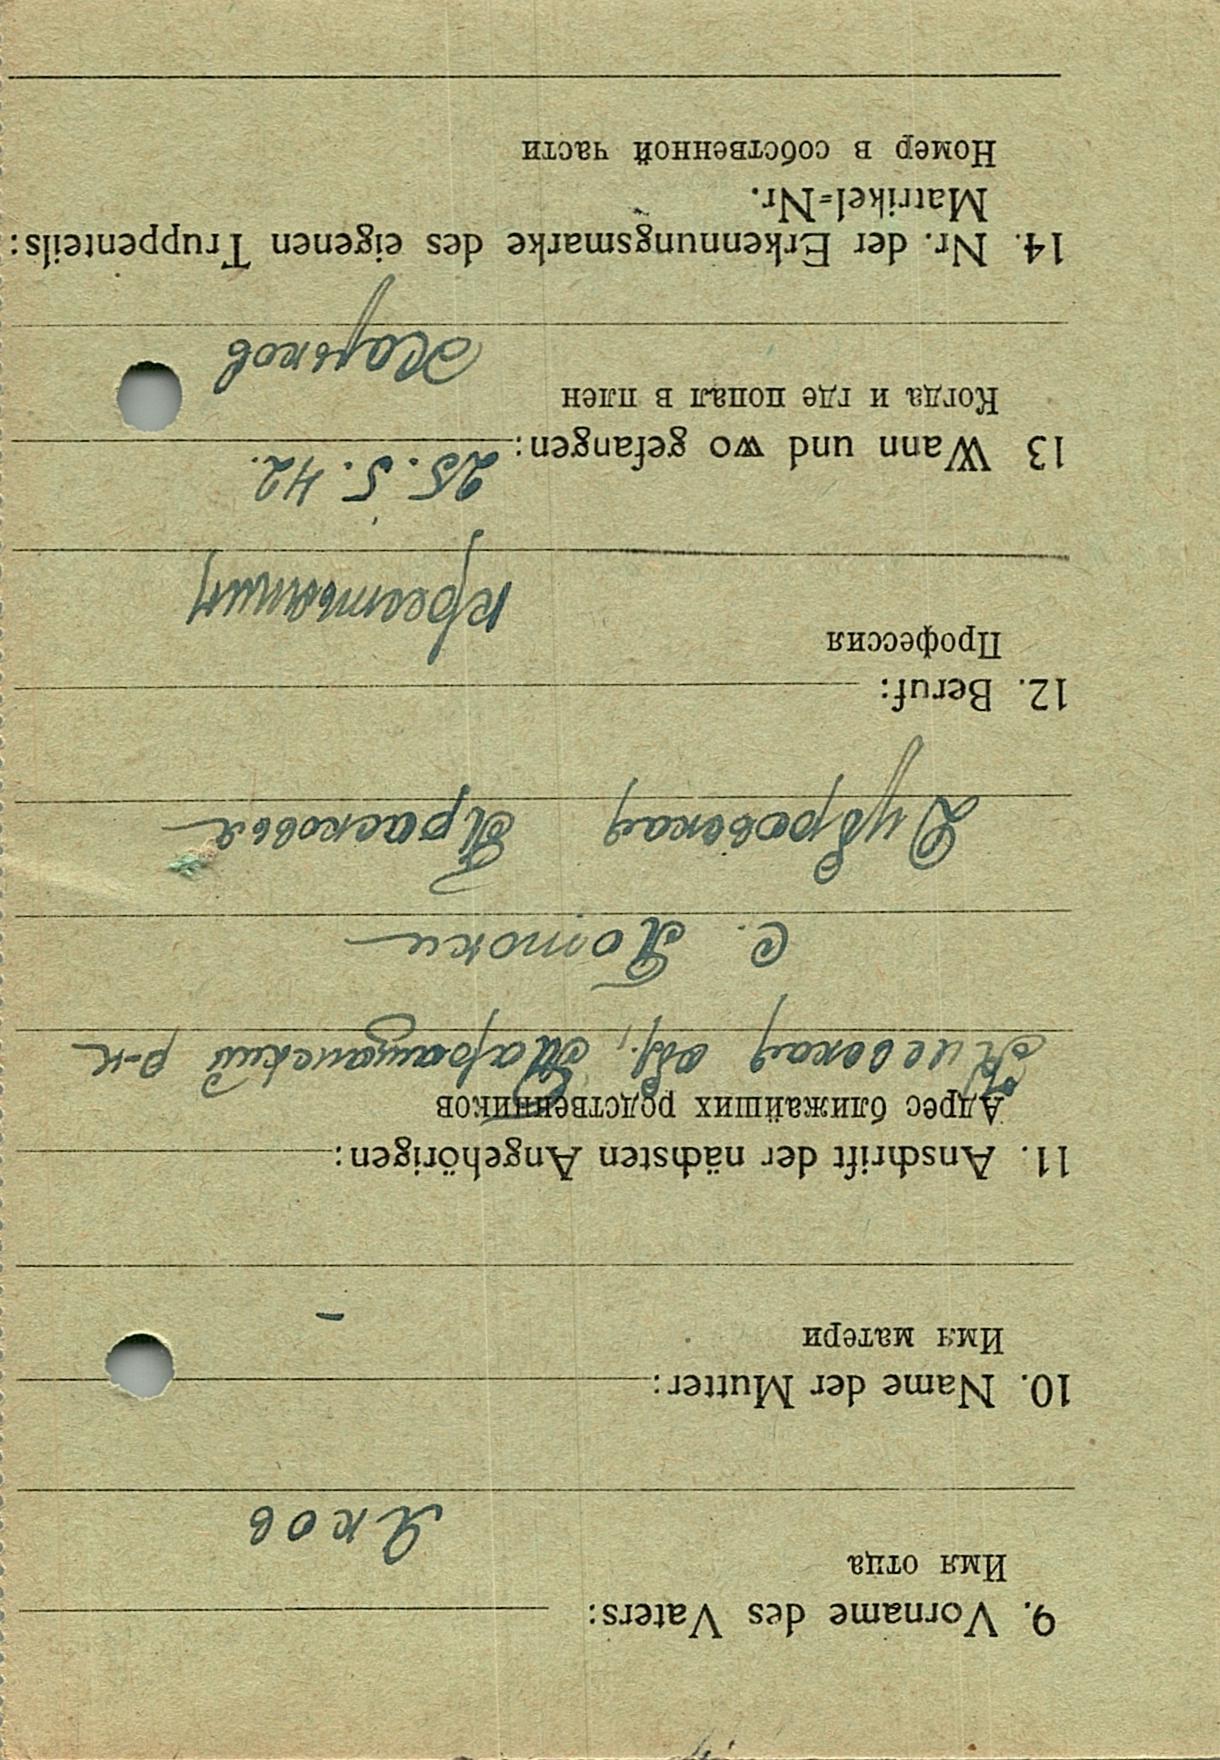 9. Vorname des Vaters:
Имя отца
Яков
10. Name der Mutter:
Имя матери
—
11. Anschrift der nächsten Angehörigen:
Адрес ближайших родственников
Киевская обл., Таращанский р-н
с. Потоки
Дубровская Прасковья
12. Beruf:
Профессия
крестьянин
25.5.42.
13 Wann und wo gefangen:
Когда и где попал в плен
Харьков
14. Nr. der Erkennungsmarke des eigenen Truppenteils:
Matrikel=Nr.
Номер в собственной части